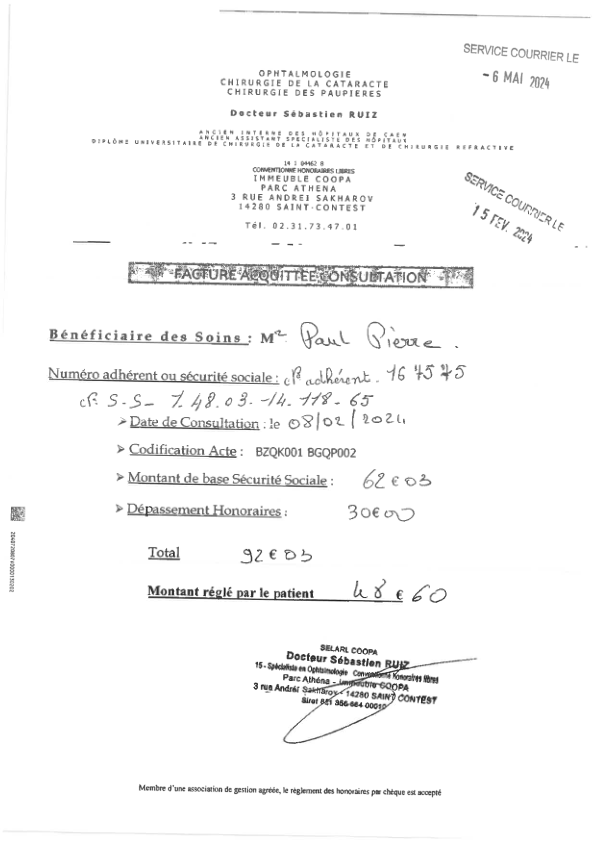 SERVICE COURRIER LE
- 6 MAI 2024
OPHTALMOLOGIE
CHIRURGIE DE LA CATARACTE
CHIRURGIE DES PAUPIERES
Docteur Sébastien RUIZ
ANCIEN INTERNE DES HÔPITAUX DE CAEN
ANCIEN ASSISTANT SPECIALISTE DES HÔPITAUX
DIPLÔME UNIVERSITAIRE DE CHIRURGIE DE LA CATARACTE ET DE CHIRURGIE REFRACTIVE
14 1 04462 8
CONVENTIONNE HONORAIRES LIBRES
IMMEUBLE COOPA
PARC ATHENA
3 RUE ANDREI SAKHAROV
14280 SAINT-CONTEST
Tél. 02.31.73.47.01
SERVICE COURRIER LE
15 FEV. 2024
FACTURE ACQUITTEE CONSULTATION
Bénéficiaire des Soins : Mr Paul Pierre.
Numéro adhérent ou sécurité sociale : n° adhérent. 167575
n° S.S- 1.48.03.-14.118-65
➤ Date de Consultation : le 08/02/2024
➤ Codification Acte : BZQK001 BGQP002
➤ Montant de base Sécurité Sociale : 62 € 03
➤ Dépassement Honoraires : 30 € 00
Total 92 € 03
Montant réglé par le patient 48 € 60
SELARL COOPA
Docteur Sébastien RUIZ
15 - Spécialiste en Ophtalmologie Conventionné Honoraires libres
Parc Athéna - Immeuble COOPA
3 rue Andréï Sakharov - 14280 SAINT CONTEST
Siret 851 356 664 00010
Membre d'une association de gestion agréée, le règlement des honoraires par chèque est accepté